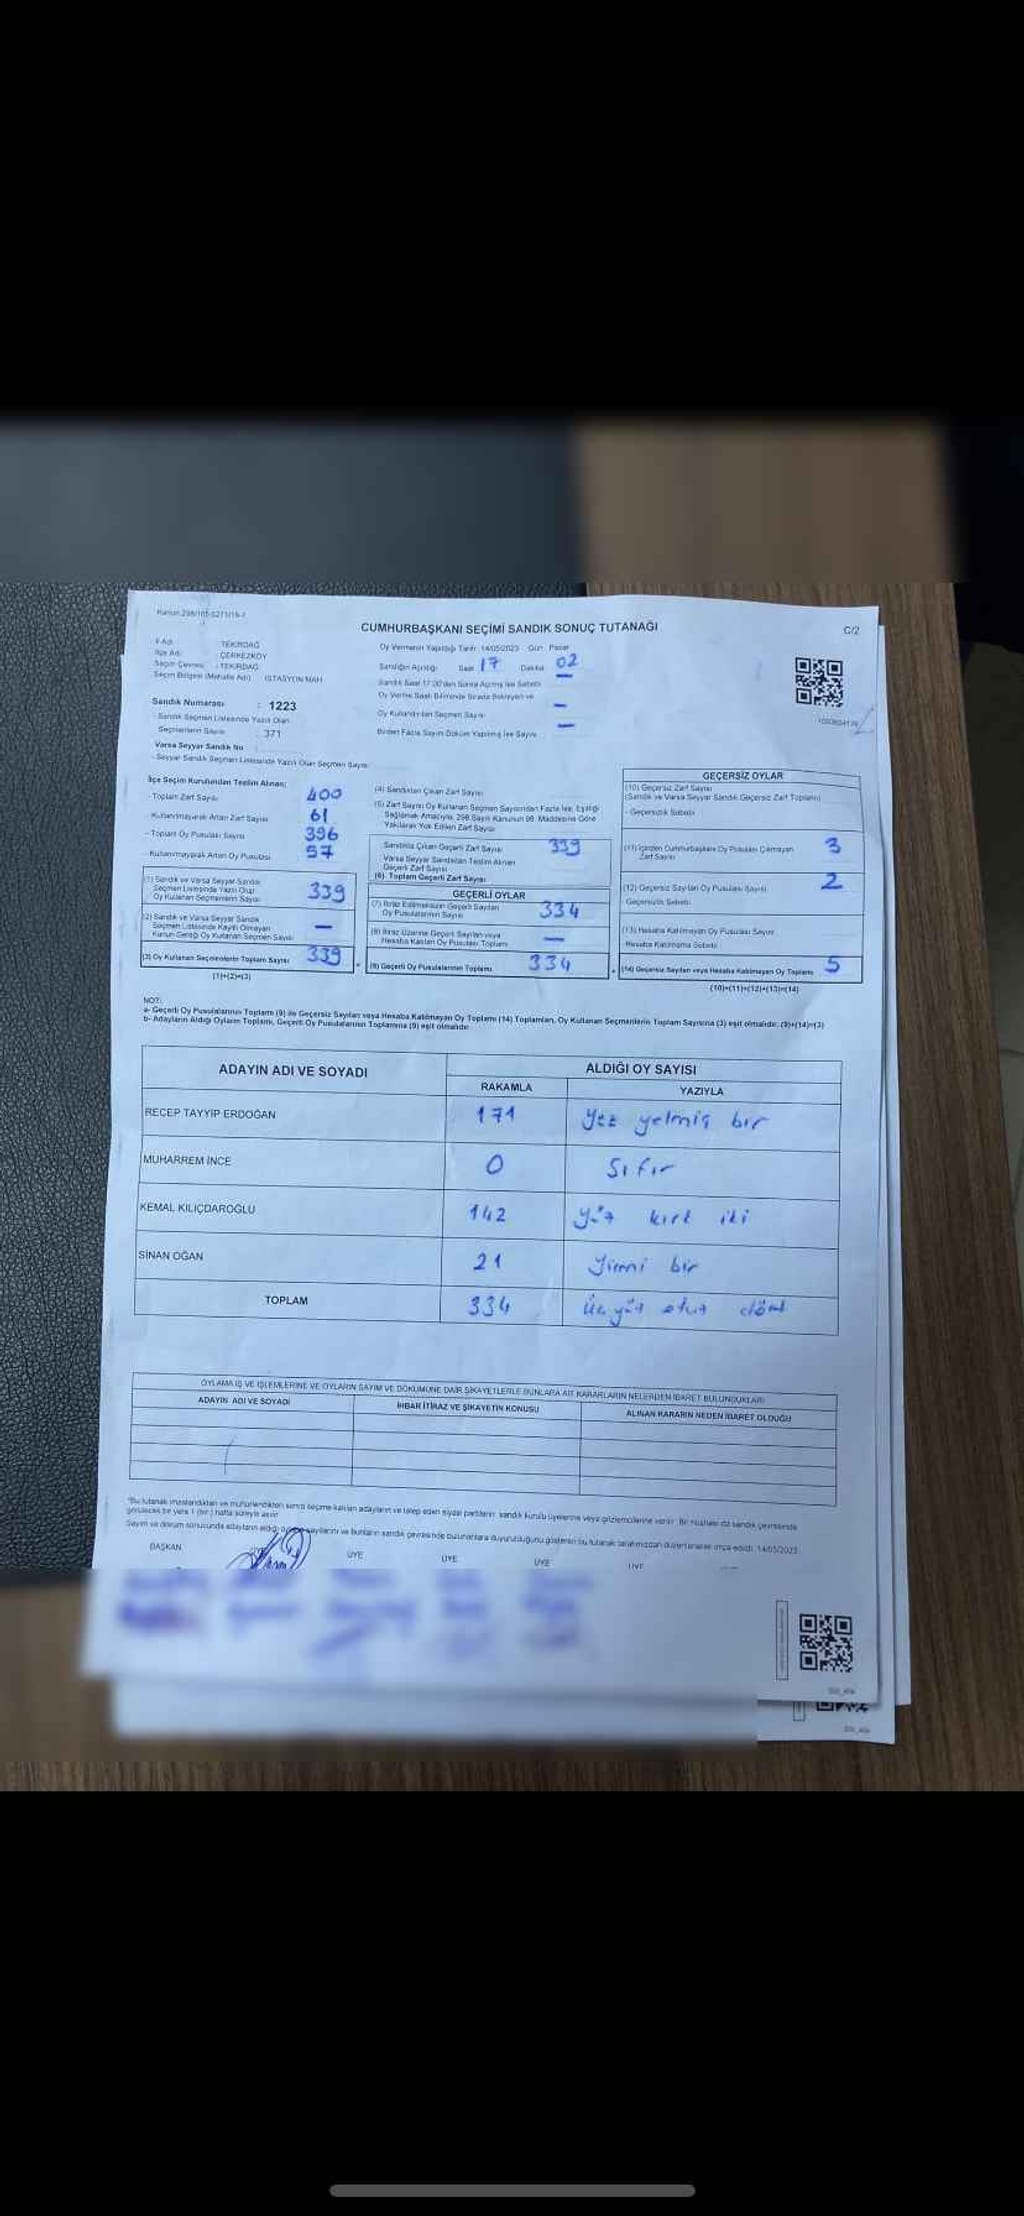 Kanun 298/105-5271/19-1
C/2
CUMHURBAŞKANI SEÇİMİ SANDIK SONUÇ TUTANAĞI
İl Adı : TEKİRDAĞ
İlçe Adı : ÇERKEZKÖY
Seçim Çevresi : TEKİRDAĞ
Seçim Bölgesi (Mahalle Adı) İSTASYON MAH
Oy Vermenin Yapıldığı Tarih 14/05/2023 Gün Pazar
Sandığın Açıldığı Saat 17 Dakika 02
Sandık Saat 17:00'den Sonra Açılmış İse Sebebi –
Oy Verme Saati Bitiminde Sırada Bekleyen ve
Oy Kullandırılan Seçmen Sayısı –
Birden Fazla Sayım Döküm Yapılmış İse Sayısı –
Sandık Numarası : 1223
- Sandık Seçmen Listesinde Yazılı Olan
Seçmenlerin Sayısı : 371
Varsa Seyyar Sandık No
- Seyyar Sandık Seçmen Listesinde Yazılı Olan Seçmen Sayısı
İlçe Seçim Kurulundan Teslim Alınan;
- Toplam Zarf Sayısı 400
- Kullanılmayarak Artan Zarf Sayısı 61
- Toplam Oy Pusulası Sayısı 396
- Kullanılmayarak Artan Oy Pusulası 57
(1) Sandık ve Varsa Seyyar Sandık
Seçmen Listesinde Yazılı Olup
Oy Kullanan Seçmenlerin Sayısı 339
(2) Sandık ve Varsa Seyyar Sandık
Seçmen Listesinde Kayıtlı Olmayan
Kanun Gereği Oy Kullanan Seçmen Sayısı –
(3) Oy Kullanan Seçmenlerin Toplam Sayısı 339
(1)+(2)=(3)
(4) Sandıktan Çıkan Zarf Sayısı
(5) Zarf Sayısı Oy Kullanan Seçmen Sayısından Fazla İse, Eşitliği
Sağlamak Amacıyla, 298 Sayılı Kanunun 98. Maddesine Göre
Yakılarak Yok Edilen Zarf Sayısı
Sandıkta Çıkan Geçerli Zarf Sayısı 339
Varsa Seyyar Sandıktan Teslim Alınan
Geçerli Zarf Sayısı
(6) Toplam Geçerli Zarf Sayısı
GEÇERLİ OYLAR
(7) İtiraz Edilmeksizin Geçerli Sayılan
Oy Pusulalarının Sayısı 334
(8) İtiraz Üzerine Geçerli Sayılan veya
Hesaba Katılan Oy Pusulası Toplamı –
(9) Geçerli Oy Pusulalarının Toplamı 334
GEÇERSİZ OYLAR
(10) Geçersiz Zarf Sayısı
(Sandık ve Varsa Seyyar Sandık Geçersiz Zarf Toplamı)
- Geçersizlik Sebebi
(11) İçinden Cumhurbaşkanı Oy Pusulası Çıkmayan
Zarf Sayısı 3
(12) Geçersiz Sayılan Oy Pusulası Sayısı 2
Geçersizlik Sebebi
(13) Hesaba Katılmayan Oy Pusulası Sayısı
Hesaba Katılmama Sebebi
(14) Geçersiz Sayılan veya Hesaba Katılmayan Oy Toplamı 5
(10)+(11)+(12)+(13)=(14)
NOT:
a- Geçerli Oy Pusulalarının Toplamı (9) ile Geçersiz Sayılan veya Hesaba Katılmayan Oy Toplamı (14) Toplamları, Oy Kullanan Seçmenlerin Toplam Sayısına (3) eşit olmalıdır. (9)+(14)=(3)
b- Adayların Aldığı Oyların Toplamı, Geçerli Oy Pusulalarının Toplamına (9) eşit olmalıdır.
ADAYIN ADI VE SOYADI ALDIĞI OY SAYISI
RAKAMLA YAZIYLA
RECEP TAYYİP ERDOĞAN 171 Yüz yetmiş bir
MUHARREM İNCE 0 Sıfır
KEMAL KILIÇDAROĞLU 142 Yüz kırk iki
SİNAN OĞAN 21 Yirmi bir
TOPLAM 334 Üç yüz otuz dört
OYLAMA İŞ VE İŞLEMLERİNE VE OYLARIN SAYIM VE DÖKÜMÜNE DAİR ŞİKAYETLERLE BUNLARA AİT KARARLARIN NELERDEN İBARET BULUNDUKLARI
ADAYIN ADI VE SOYADI İHBAR İTİRAZ VE ŞİKAYETİN KONUSU ALINAN KARARIN NEDEN İBARET OLDUĞU
*Bu tutanak imzalandıktan ve mühürlendikten sonra seçime katılan adayların ve talep eden siyasi partilerin sandık kurulu üyelerine veya gözlemcilerine verilir. Bir nüshası da sandık çevresinde
görülecek bir yere 1 (bir) hafta süreyle asılır.
Sayım ve döküm sonucunda adayların aldığı oy sayılarını ve bunların sandık çevresinde bulunanlara duyurulduğunu gösteren bu tutanak tarafımızdan düzenlenerek imza edildi. 14/05/2023
BAŞKAN ÜYE ÜYE ÜYE ÜYE